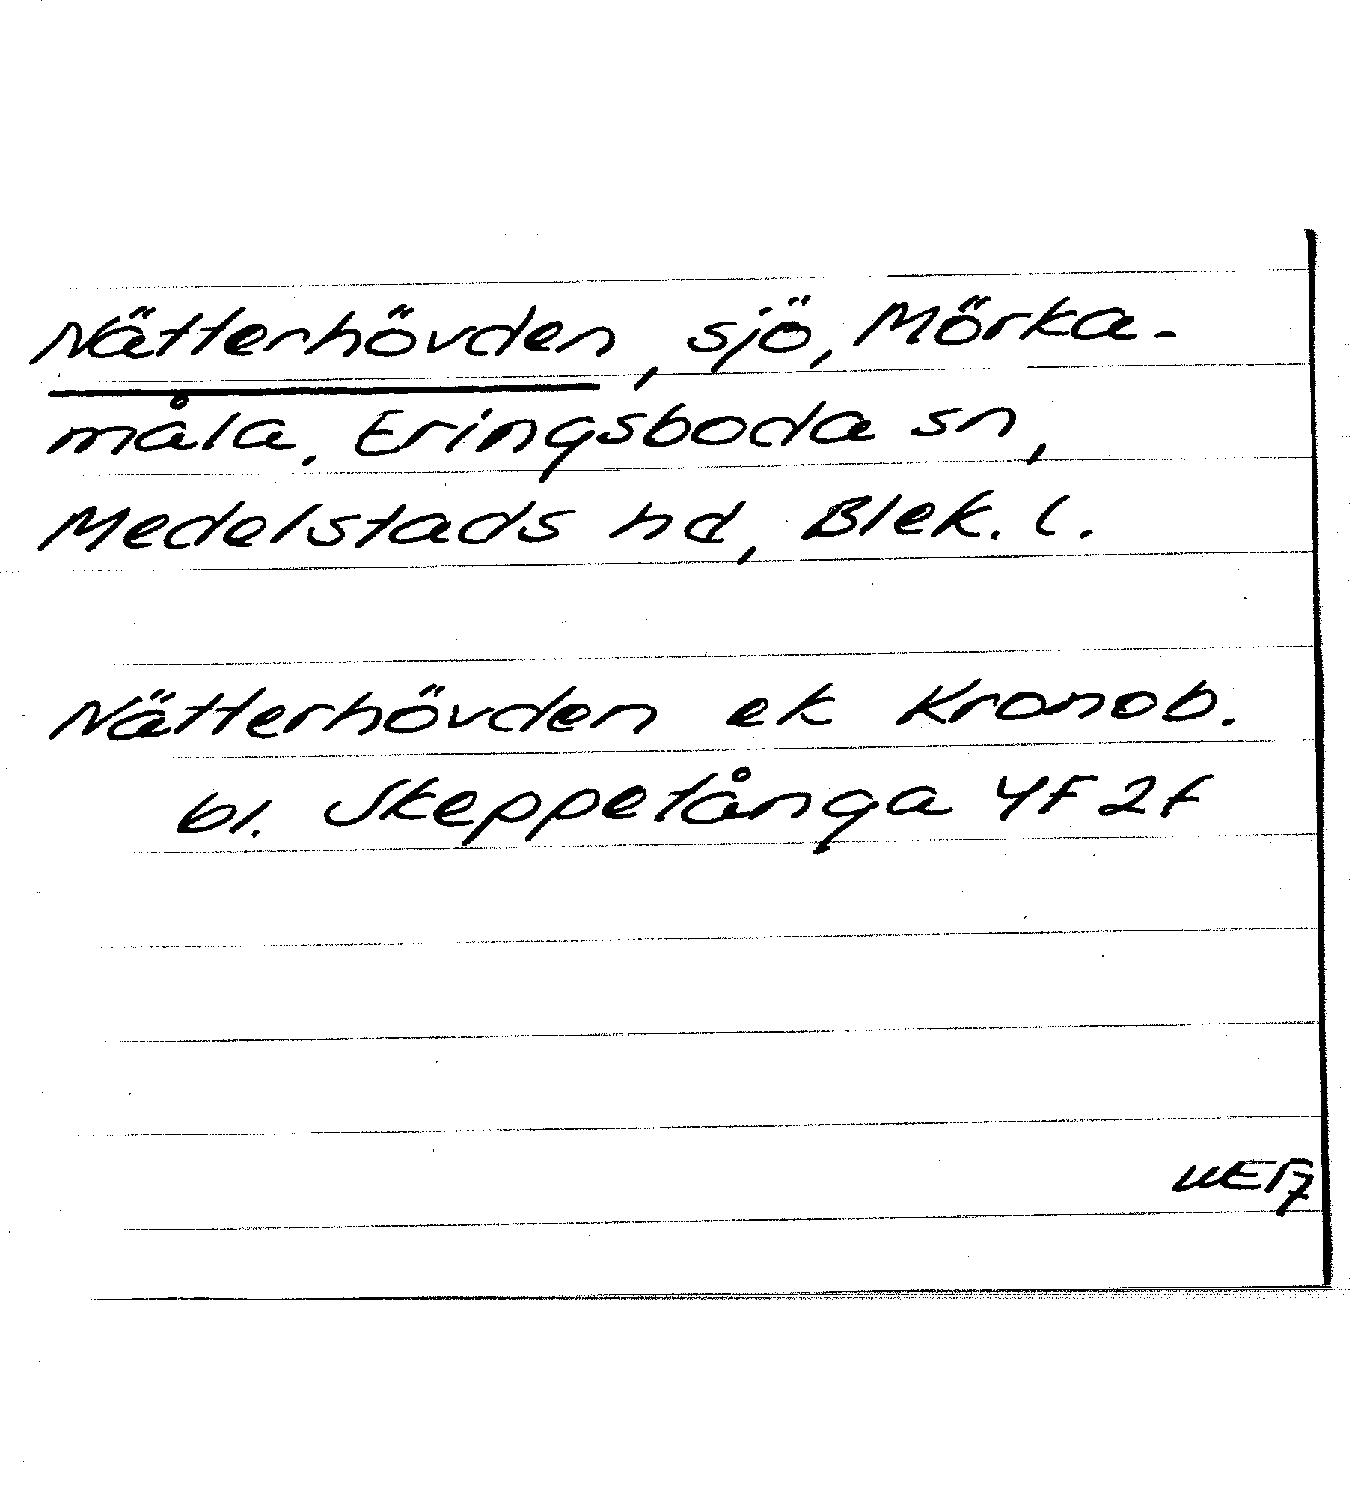 Nätterhövden, sjö, Mörka-
måla, Eringsboda sn,
Medelstads hd, Blek. l.
Nätterhövden ek Kronob.
bl. Skeppetånga 4F2f